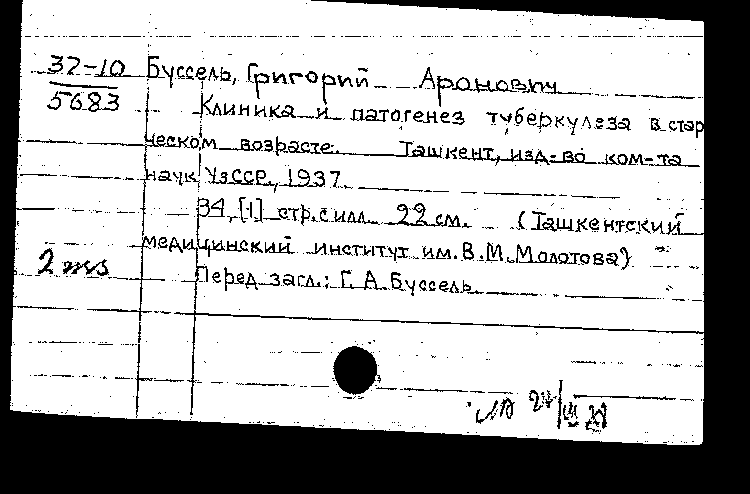 37-10 Буссель, Григорий Аронович
5683 Клиника и патогенез туберкулеза в стар
ческом возрасте. Ташкент, изд-во ком-та
наук УзССР, 1937.
34, [1] стр. с илл. 22 см. (Ташкентский
медицинский институт им. В. М. Молотова)
2 экз
Перед загл.: Г. А. Буссель.